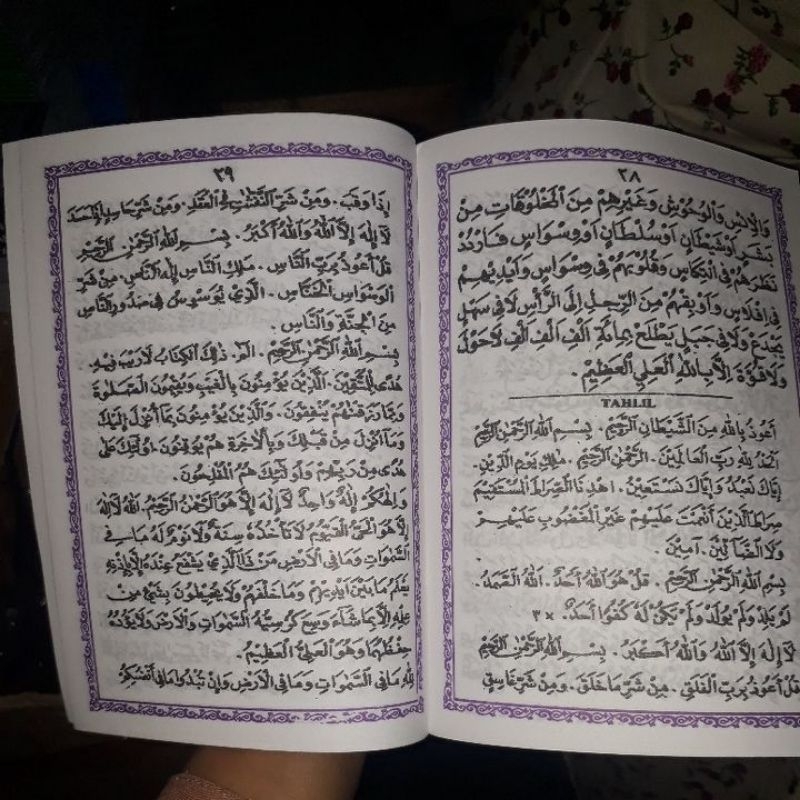 ٣٨
وَالْاِنْسِ وَالْوُحُوْشِ وَغَيْرِهِمْ مِنَ الْمَخْلُوْقَاتِ مِنْ
بَشَرٍ اَوْشَيْطَانٍ اَوْسُلْطَانٍ اَوْوِسْوَاسٍ فَارْدُدْ
نَظَرَهُمْ فِى انْتِكَاسٍ وَقُلُوْبَهُمْ فِى وِسْوَاسٍ وَاَيْدِيَهُمْ
فِى اِفْلَاسٍ وَاَوْبِقْهُمْ مِنَ الرِّجْلِ اِلَى الرَّأْسِ لَا فِى سَهْلٍ
يُجْدَعُ وَلَا فِى جَبَلٍ يَطْلَعُ بِمِائَةِ اَلْفِ اَلْفِ اَلْفِ لَاحَوْلَ
وَلَا قُوَّةَ اِلَّا بِاللهِ الْعَلِيِّ الْعَظِيْمِ.
TAHLIL
اَعُوْذُ بِاللهِ مِنَ الشَّيْطَانِ الرَّجِيْمِ. بِسْمِ اللهِ الرَّحْمٰنِ الرَّحِيْمِ
اَلْحَمْدُ لِلهِ رَبِّ الْعَالَمِيْنَ. الرَّحْمٰنِ الرَّحِيْمِ. مٰلِكِ يَوْمِ الدِّيْنِ.
اِيَّاكَ نَعْبُدُ وَاِيَّاكَ نَسْتَعِيْنُ. اِهْدِنَا الصِّرَاطَ الْمُسْتَقِيْمَ
صِرَاطَ الَّذِيْنَ اَنْعَمْتَ عَلَيْهِمْ غَيْرِ الْمَغْضُوْبِ عَلَيْهِمْ
وَلَا الضَّآلِّيْنَ. آمِيْنَ.
بِسْمِ اللهِ الرَّحْمٰنِ الرَّحِيْمِ. قُلْ هُوَ اللهُ اَحَدٌ. اَللهُ الصَّمَدُ.
لَمْ يَلِدْ وَلَمْ يُوْلَدْ وَلَمْ يَكُنْ لَهُ كُفُوًا اَحَدٌ. ×٣
لَآ اِلٰهَ اِلَّا اللهُ وَاللهُ اَكْبَرُ. بِسْمِ اللهِ الرَّحْمٰنِ الرَّحِيْمِ
قُلْ اَعُوْذُ بِرَبِّ الْفَلَقِ. مِنْ شَرِّ مَا خَلَقَ. وَمِنْ شَرِّ غَاسِقٍ
٣٩
اِذَا وَقَبَ. وَمِنْ شَرِّ النَّفّٰثٰتِ فِى الْعُقَدِ. وَمِنْ شَرِّ حَاسِدٍ اِذَا حَسَدَ
لَآ اِلٰهَ اِلَّا اللهُ وَاللهُ اَكْبَرُ. بِسْمِ اللهِ الرَّحْمٰنِ الرَّحِيْمِ
قُلْ اَعُوْذُ بِرَبِّ النَّاسِ. مَلِكِ النَّاسِ اِلٰهِ النَّاسِ. مِنْ شَرِّ
الْوَسْوَاسِ الْخَنَّاسِ. الَّذِيْ يُوَسْوِسُ فِى صُدُوْرِ النَّاسِ
مِنَ الْجِنَّةِ وَالنَّاسِ.
بِسْمِ اللهِ الرَّحْمٰنِ الرَّحِيْمِ. الٓمٓ. ذٰلِكَ الْكِتَابُ لَارَيْبَ فِيْهِ.
هُدًى لِلْمُتَّقِيْنَ. الَّذِيْنَ يُؤْمِنُوْنَ بِالْغَيْبِ وَيُقِيْمُوْنَ الصَّلٰوةَ
وَمِمَّا رَزَقْنٰهُمْ يُنْفِقُوْنَ. وَالَّذِيْنَ يُؤْمِنُوْنَ بِمَآ اُنْزِلَ اِلَيْكَ
وَمَآ اُنْزِلَ مِنْ قَبْلِكَ وَبِالْاٰخِرَةِ هُمْ يُوْقِنُوْنَ. اُولٰٓئِكَ عَلٰى
هُدًى مِنْ رَبِّهِمْ وَاُولٰٓئِكَ هُمُ الْمُفْلِحُوْنَ.
وَاِلٰهُكُمْ اِلٰهٌ وَاحِدٌ لَآ اِلٰهَ اِلَّا هُوَ الرَّحْمٰنُ الرَّحِيْمُ. اَللهُ لَآ اِلٰهَ
اِلَّا هُوَ الْحَيُّ الْقَيُّوْمُ لَا تَأْخُذُهُ سِنَةٌ وَلَا نَوْمٌ لَهُ مَا فِى
السَّمٰوَاتِ وَمَا فِى الْاَرْضِ مَنْ ذَا الَّذِيْ يَشْفَعُ عِنْدَهُ اِلَّا بِاِذْنِهِ
يَعْلَمُ مَا بَيْنَ اَيْدِيْهِمْ وَمَا خَلْفَهُمْ وَلَا يُحِيْطُوْنَ بِشَيْءٍ مِنْ
عِلْمِهِ اِلَّا بِمَا شَآءَ وَسِعَ كُرْسِيُّهُ السَّمٰوَاتِ وَالْاَرْضَ وَلَا يَؤُدُهُ
حِفْظُهُمَا وَهُوَ الْعَلِيُّ الْعَظِيْمُ.
لِلهِ مَا فِى السَّمٰوَاتِ وَمَا فِى الْاَرْضِ وَاِنْ تُبْدُوْا مَا فِى اَنْفُسِكُمْ